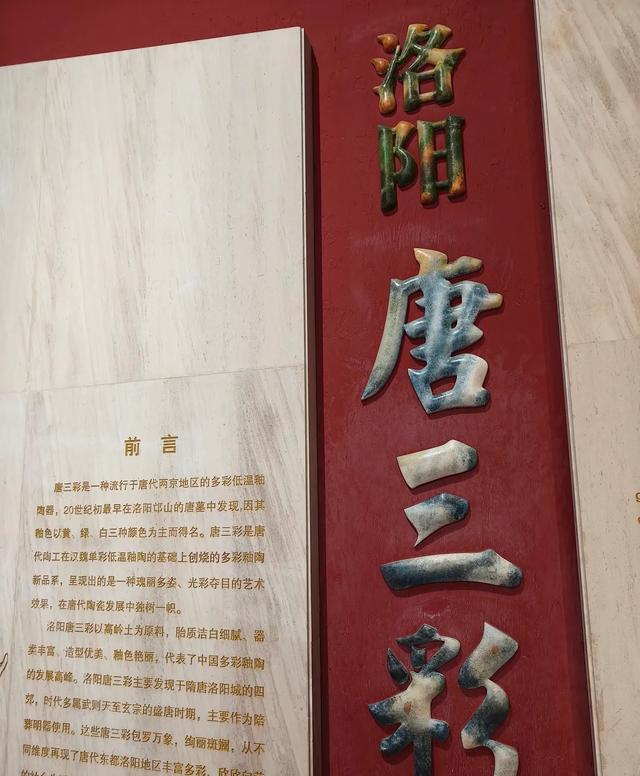 洛阳
唐三彩
前言
唐三彩是一种流行于唐代两京地区的多彩低温釉
陶器，20世纪初最早在洛阳邙山的唐墓中发现，因其
釉色以黄、绿、白三种颜色为主而得名。唐三彩是唐
代陶工在汉魏单彩低温釉陶的基础上创烧的多彩釉陶
新品系，呈现出的是一种瑰丽多姿、光彩夺目的艺术
效果，在唐代陶瓷发展中独树一帜。
洛阳唐三彩以高岭土为原料，胎质洁白细腻、器
类丰富、造型优美、釉色艳丽，代表了中国多彩釉陶
的发展高峰。洛阳唐三彩主要发现于隋唐洛阳城的四
郊，时代多属武则天至玄宗的盛唐时期，主要作为陪
葬明器使用。这些唐三彩包罗万象，绚丽斑斓，从不
同维度再现了唐代东都洛阳地区丰富多彩、欣欣向荣